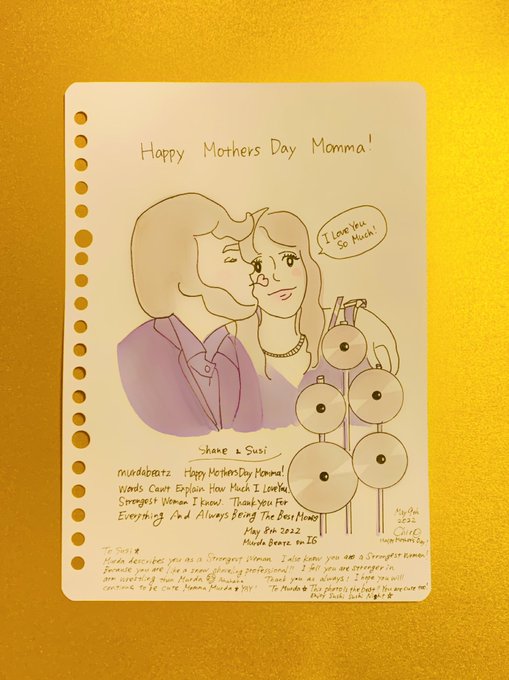 Happy Mothers Day Momma!
I Love You
So Much!
Shane & Susi
murdabeatz Happy Mothers Day Momma!
Words Can't Explain How Much I Love You.
Strongest Woman I Know. Thank You For
Everything And Always Being The Best Mom
May 8th 2022
Murda Beatz on IG
May 9th
2022
Chiro
Happy Mother's Day
To Susi ☆
Murda describes you as a Strongest Woman. I also know you are a Strongest Woman!
Because you are like a snow shoveling professional!! I fell you are stronger in
arm wrestling than Murda Ahahaha Thank you as always! I hope you will
continue to be cute Momma Murda YAY! To Murda ☆ This photo is the best!! You are cute too!
Enjoy Sushi Sushi Night ☆